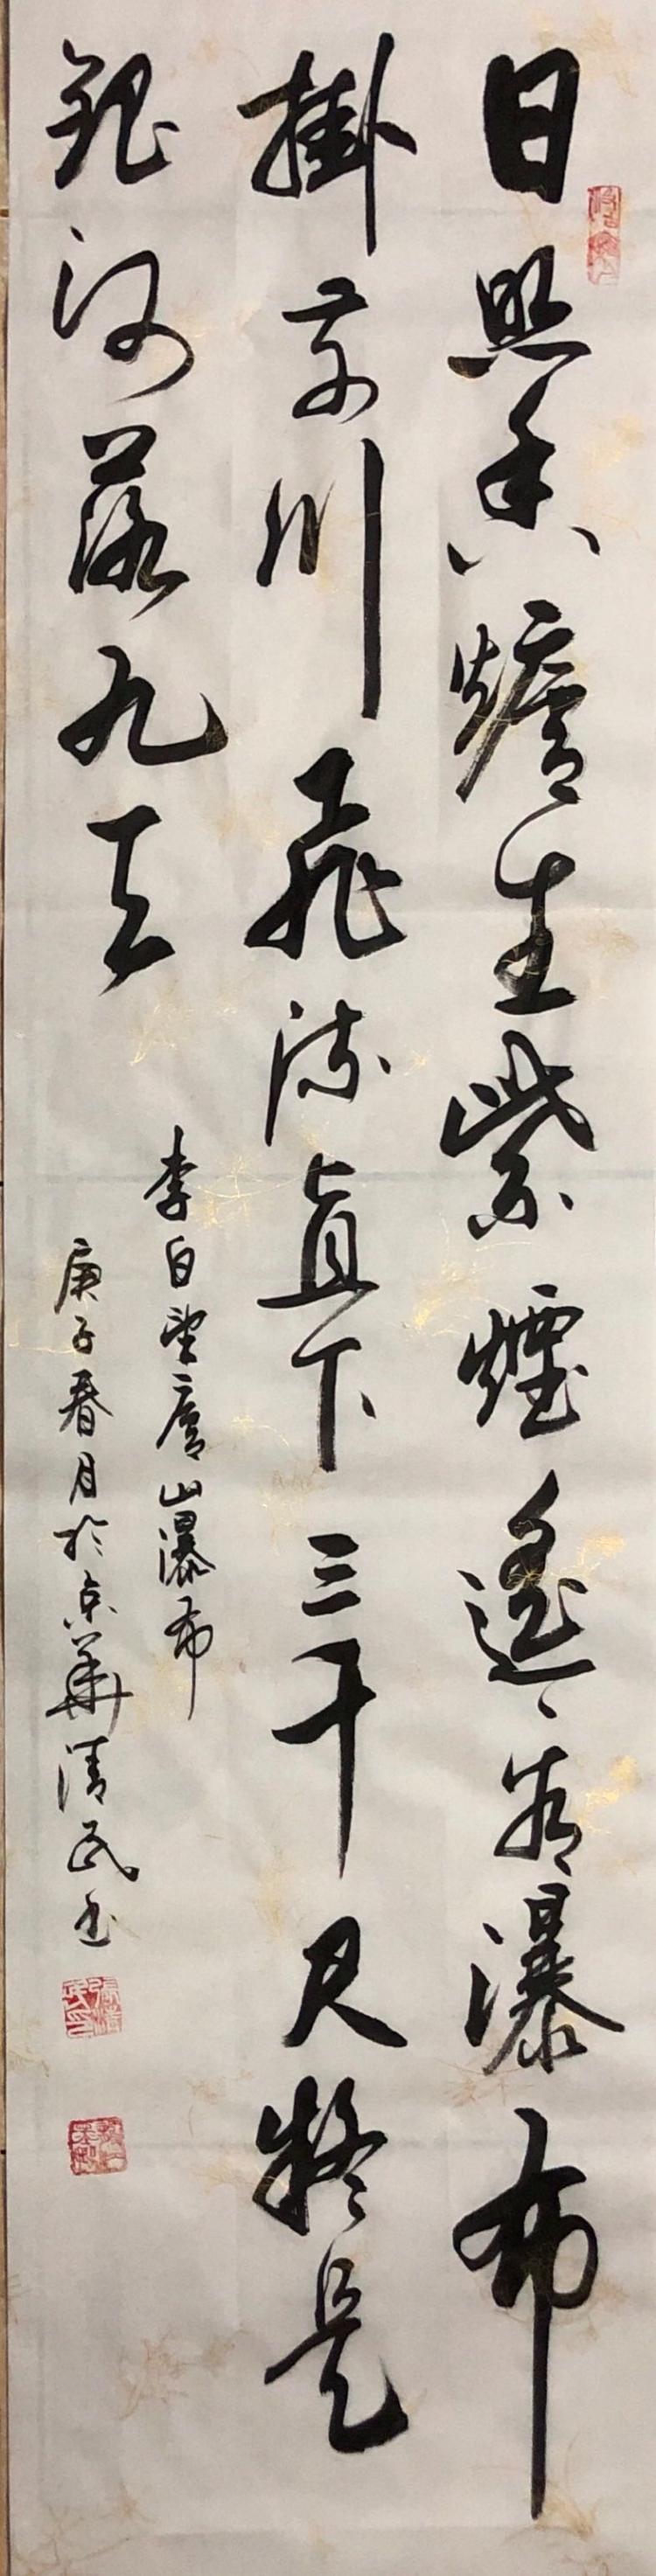 日照香爐生紫煙遙看瀑布
掛前川飛流直下三千尺疑是
銀河落九天
李白望廬山瀑布
庚子春月於京華清民书